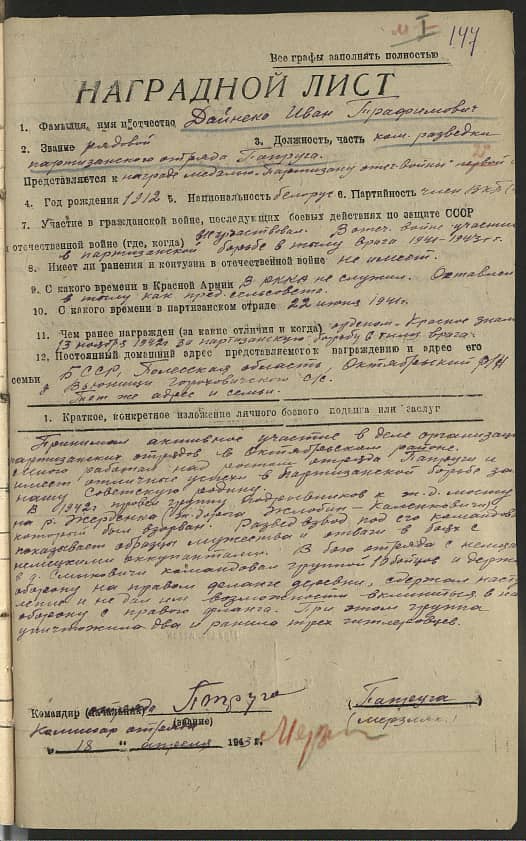 I
147
Все графы заполнять полностью
НАГРАДНОЙ ЛИСТ
1. Фамилия, имя и отчество Дайнеко Иван Трафимович
2. Звание рядовой 3. Должность, часть ком. разведки
партизанского отряда Патруга.
Представляется к награде медалью "Партизану отеч. войны" первой
4. Год рождения 1912 5. Национальность белорус 6. Партийность член ВКП(
7. Участие в гражданской войне, последующих боевых действиях по защите СССР
и отечественной войне (где, когда) Не участвовал. В отеч. войне участник
в партизанской борьбе в тылу врага 1941-1943 г.г.
8. Имеет ли ранения и контузии в отечественной войне не имеет.
9. С какого времени в Красной Армии В РККА не служил. Оставлен
в тылу как пред. сельсовета.
10. С какого времени в партизанском отряде 22 июня 1941г.
11. Чем ранее награжден (за какие отличия и когда) орденом "Красное знам
13 ноября 1942г за партизанскую борьбу в тылу врага.
12. Постоянный домашний адрес представляемого к награждению и адрес его
семьи БССР, Полесская область, Октябрьский р/н
д. Гороховичского с/с.
Тот же адрес и семьи.
1. Краткое, конкретное изложение личного боевого подвига или заслуг
Принимал активное участие в деле организац
партизанских отрядов в Октябрьском районе.
Много работал над ростом отряда и
имеет отличные успехи в партизанской борьбе за
нашу Советскую родину.
В 1942г провел группу подрывников к ж.д. мосту
на р. (ж. дорога Жлобин - Калинковичи)
который был взорван. Развед взвод под его командов
показывает образцы мужества и отваги в боях с
немецкими оккупантами. В бою отряда с немцам
в д. командовал группой 19 бойцов и держал
оборону на правом фланге деревни, сдержал наст
ление и не дал им возможности вклиниться в на
оборону с правого фланга. При этом группа
уничтожила два и ранила трех гитлеровцев.
Командир (начальник)
(звание)
Комиссар отряда
(Мерзляк.)
" 18 " апреля 1943 г.